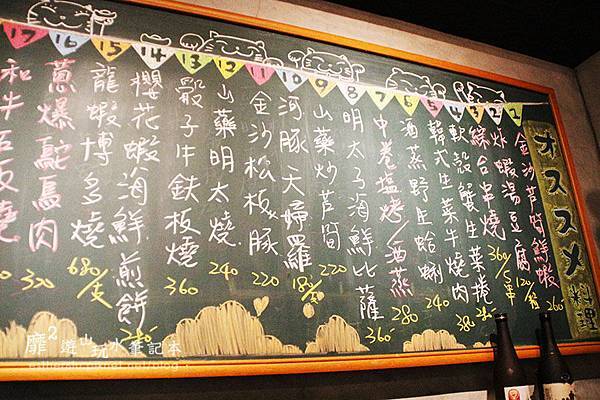 オススメ料理
1 金沙芦筍鮮蝦 260
2 炸蝦湯豆腐 120
3 綜合串燒 360/5串
4 軟殼蟹生菜捲 380
5 韓式生菜牛燒肉 240
6 酒蒸野生蛤蜊 280
7 中卷塩烤/酒蒸 360
8 明太子海鮮比薩
9 山藥炒芦筍 220
10 河豚天婦羅 180/支
11 金沙松板豚 220
12 山藥明太燒 240
13 骰子牛鐵板燒 360
14 櫻花蝦海鮮煎餅
15 龍蝦博多燒 680/支
16 蔥爆鴕鳥肉 320
17 和牛石板燒
靡2遊山玩水筆記本